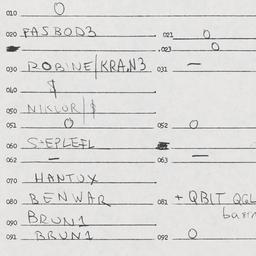 010 O
020 PASBOD3 021 O
.023 O
030 ROBINE/KRAN3 031 —
040 $
050 NIKLUR/$
051 O 052 O
060 S-EPLEFL
062 — 063 —
070 HANTUX
080 BENWAR 081 + QBIT QGL
basin
090 BRUN1
091 BRUN1 092 O